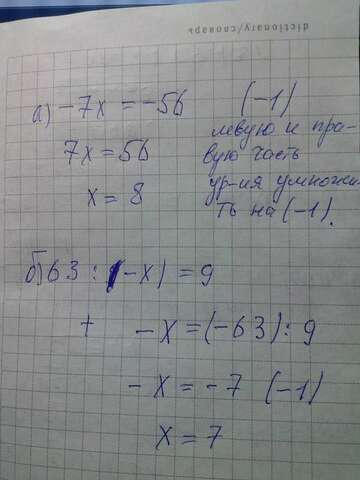 dictionary/словарь
а) -7x = -56 (-1)
левую и пра-
7x = 56 вую часть
x = 8 ур-ия умножи-
ть на (-1).
б) 63 : (-x) = 9
+ -x = (-63) : 9
-x = -7 (-1)
x = 7